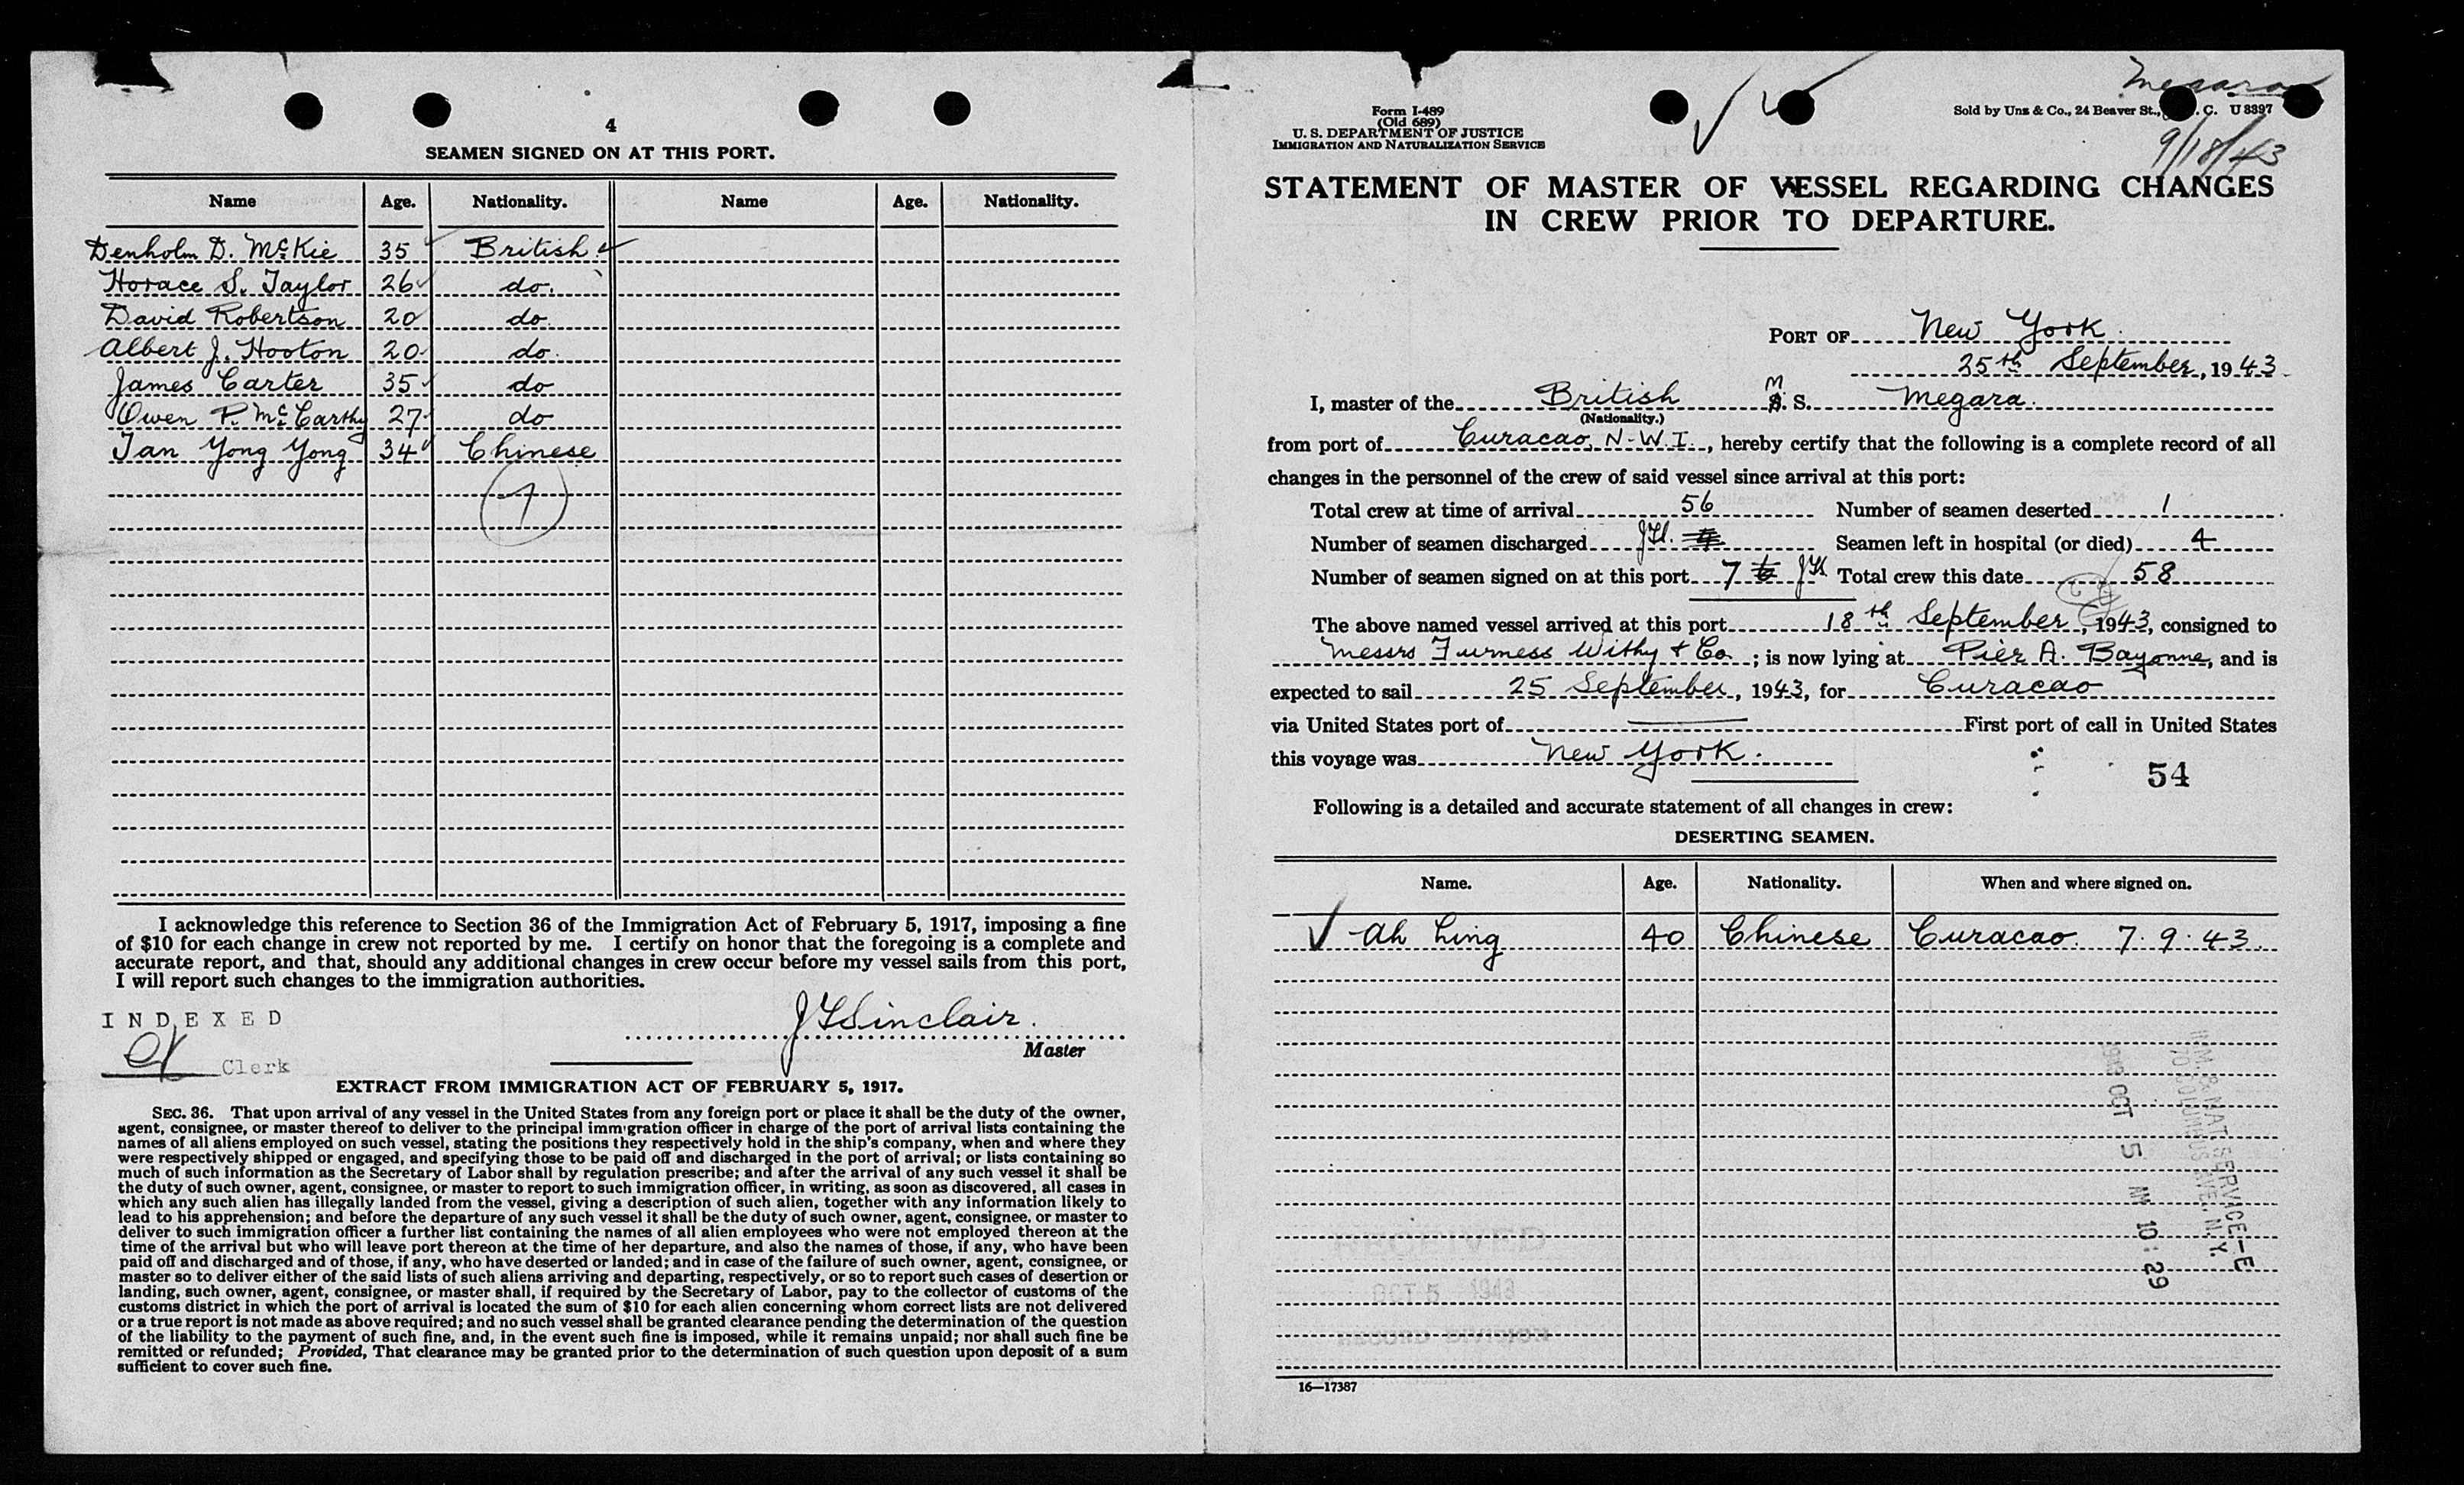 4
SEAMEN SIGNED ON AT THIS PORT.
Name Age. Nationality. Name Age. Nationality.
Denholm D. McKie 35 British
Horace S. Taylor 26 do.
David Robertson 20 do.
Albert J. Hooton 20 do.
James Carter 35 do
Owen P. McCarthy 27 do
Tan Yong Yong 34 Chinese
7
I acknowledge this reference to Section 36 of the Immigration Act of February 5, 1917, imposing a fine
of $10 for each change in crew not reported by me. I certify on honor that the foregoing is a complete and
accurate report, and that, should any additional changes in crew occur before my vessel sails from this port,
I will report such changes to the immigration authorities.
INDEXED
Clerk
J Sinclair.
Master
EXTRACT FROM IMMIGRATION ACT OF FEBRUARY 5, 1917.
SEC. 36. That upon arrival of any vessel in the United States from any foreign port or place it shall be the duty of the owner,
agent, consignee, or master thereof to deliver to the principal immigration officer in charge of the port of arrival lists containing the
names of all aliens employed on such vessel, stating the positions they respectively hold in the ship's company, when and where they
were respectively shipped or engaged, and specifying those to be paid off and discharged in the port of arrival; or lists containing so
much of such information as the Secretary of Labor shall by regulation prescribe; and after the arrival of any such vessel it shall be
the duty of such owner, agent, consignee, or master to report to such immigration officer, in writing, as soon as discovered, all cases in
which any such alien has illegally landed from the vessel, giving a description of such alien, together with any information likely to
lead to his apprehension; and before the departure of any such vessel it shall be the duty of such owner, agent, consignee, or master to
deliver to such immigration officer a further list containing the names of all alien employees who were not employed thereon at the
time of the arrival but who will leave port thereon at the time of her departure, and also the names of those, if any, who have been
paid off and discharged and of those, if any, who have deserted or landed; and in case of the failure of such owner, agent, consignee, or
master so to deliver either of the said lists of such aliens arriving and departing, respectively, or so to report such cases of desertion or
landing, such owner, agent, consignee, or master shall, if required by the Secretary of Labor, pay to the collector of customs of the
customs district in which the port of arrival is located the sum of $10 for each alien concerning whom correct lists are not delivered
or a true report is not made as above required; and no such vessel shall be granted clearance pending the determination of the question
of the liability to the payment of such fine, and, in the event such fine is imposed, while it remains unpaid; nor shall such fine be
remitted or refunded; Provided, That clearance may be granted prior to the determination of such question upon deposit of a sum
sufficient to cover such fine.
Megara
Form I-489
(Old 689)
U. S. DEPARTMENT OF JUSTICE
IMMIGRATION AND NATURALIZATION SERVICE
Sold by Unz & Co., 24 Beaver St., . C. U 8397
9/18/43
STATEMENT OF MASTER OF VESSEL REGARDING CHANGES
IN CREW PRIOR TO DEPARTURE.
PORT OF New York.
25th September, 1943.
I, master of the British M. S. Megara.
(Nationality.)
from port of Curacao, N.W.I., hereby certify that the following is a complete record of all
changes in the personnel of the crew of said vessel since arrival at this port:
Total crew at time of arrival 56 Number of seamen deserted 1
Number of seamen discharged Seamen left in hospital (or died) 4
Number of seamen signed on at this port 7 Total crew this date 58
The above named vessel arrived at this port 18th September, 1943, consigned to
Messrs Furness Withy & Co.; is now lying at Pier A. Bayonne, and is
expected to sail 25 September, 1943, for Curacao
via United States port of First port of call in United States
this voyage was New York.
54
Following is a detailed and accurate statement of all changes in crew:
DESERTING SEAMEN.
Name. Age. Nationality. When and where signed on.
Ah Ling 40 Chinese Curacao. 7.9.43.
IMM. & NAT. SERVICE-E
70 COLUMBUS AVE. N.Y.
1943 OCT 5 AM 10:29
RECEIVED
OCT 5 1943
16—17387